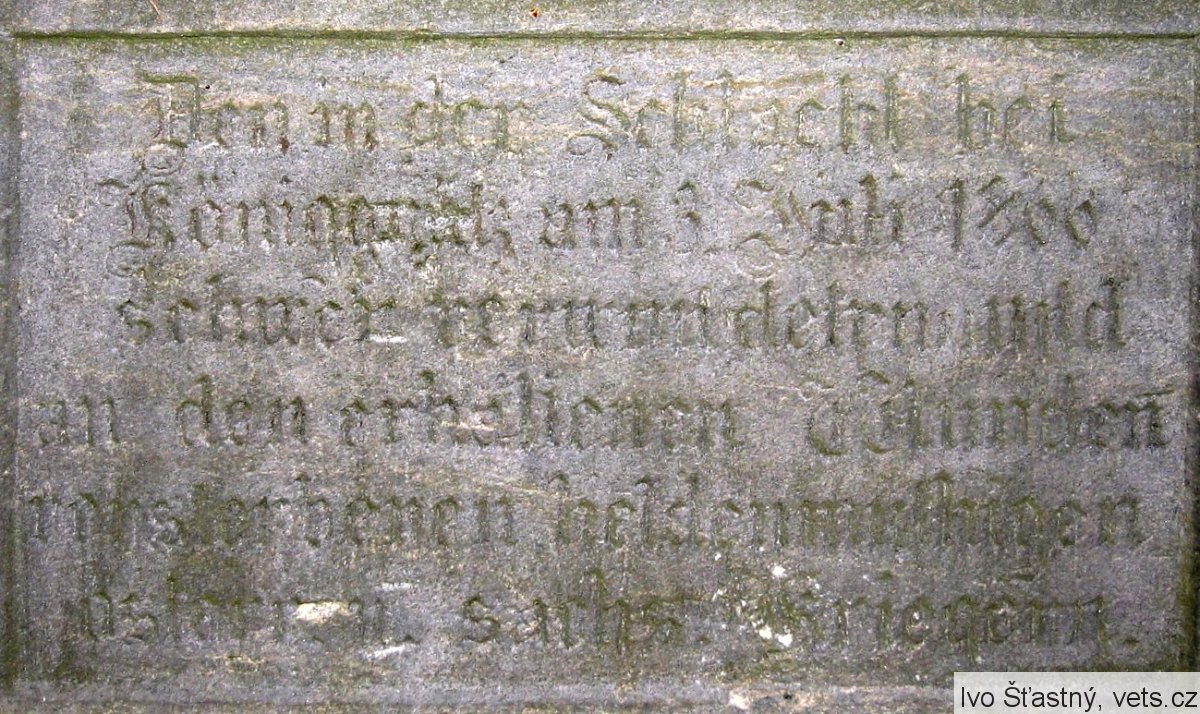 Den in der Schlacht bei
Königgrätz am 3. Juli 1866
schwer verwundeten und
an den erhaltenen Wunden
verstorbenen heldenmuthigen
österr. u. sächs. Kriegern.
Ivo Šťastný, vets.cz